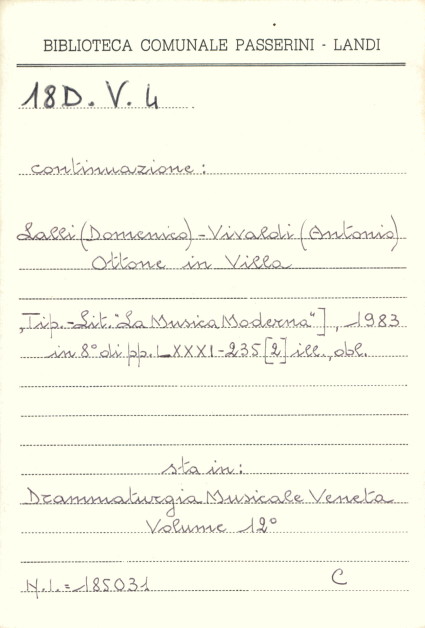 BIBLIOTECA COMUNALE PASSERINI - LANDI
18D. V. 4
continuazione:
Lalli (Domenico) - Vivaldi (Antonio)
Ottone in Villa
, Tip.-Lit. "La Musica Moderna"], 1983
in 8° di pp. LXXXI-235 [2] ill., obl.
sta in:
Drammaturgia Musicale Veneta
Volume 12°
N.I. = 185031
C